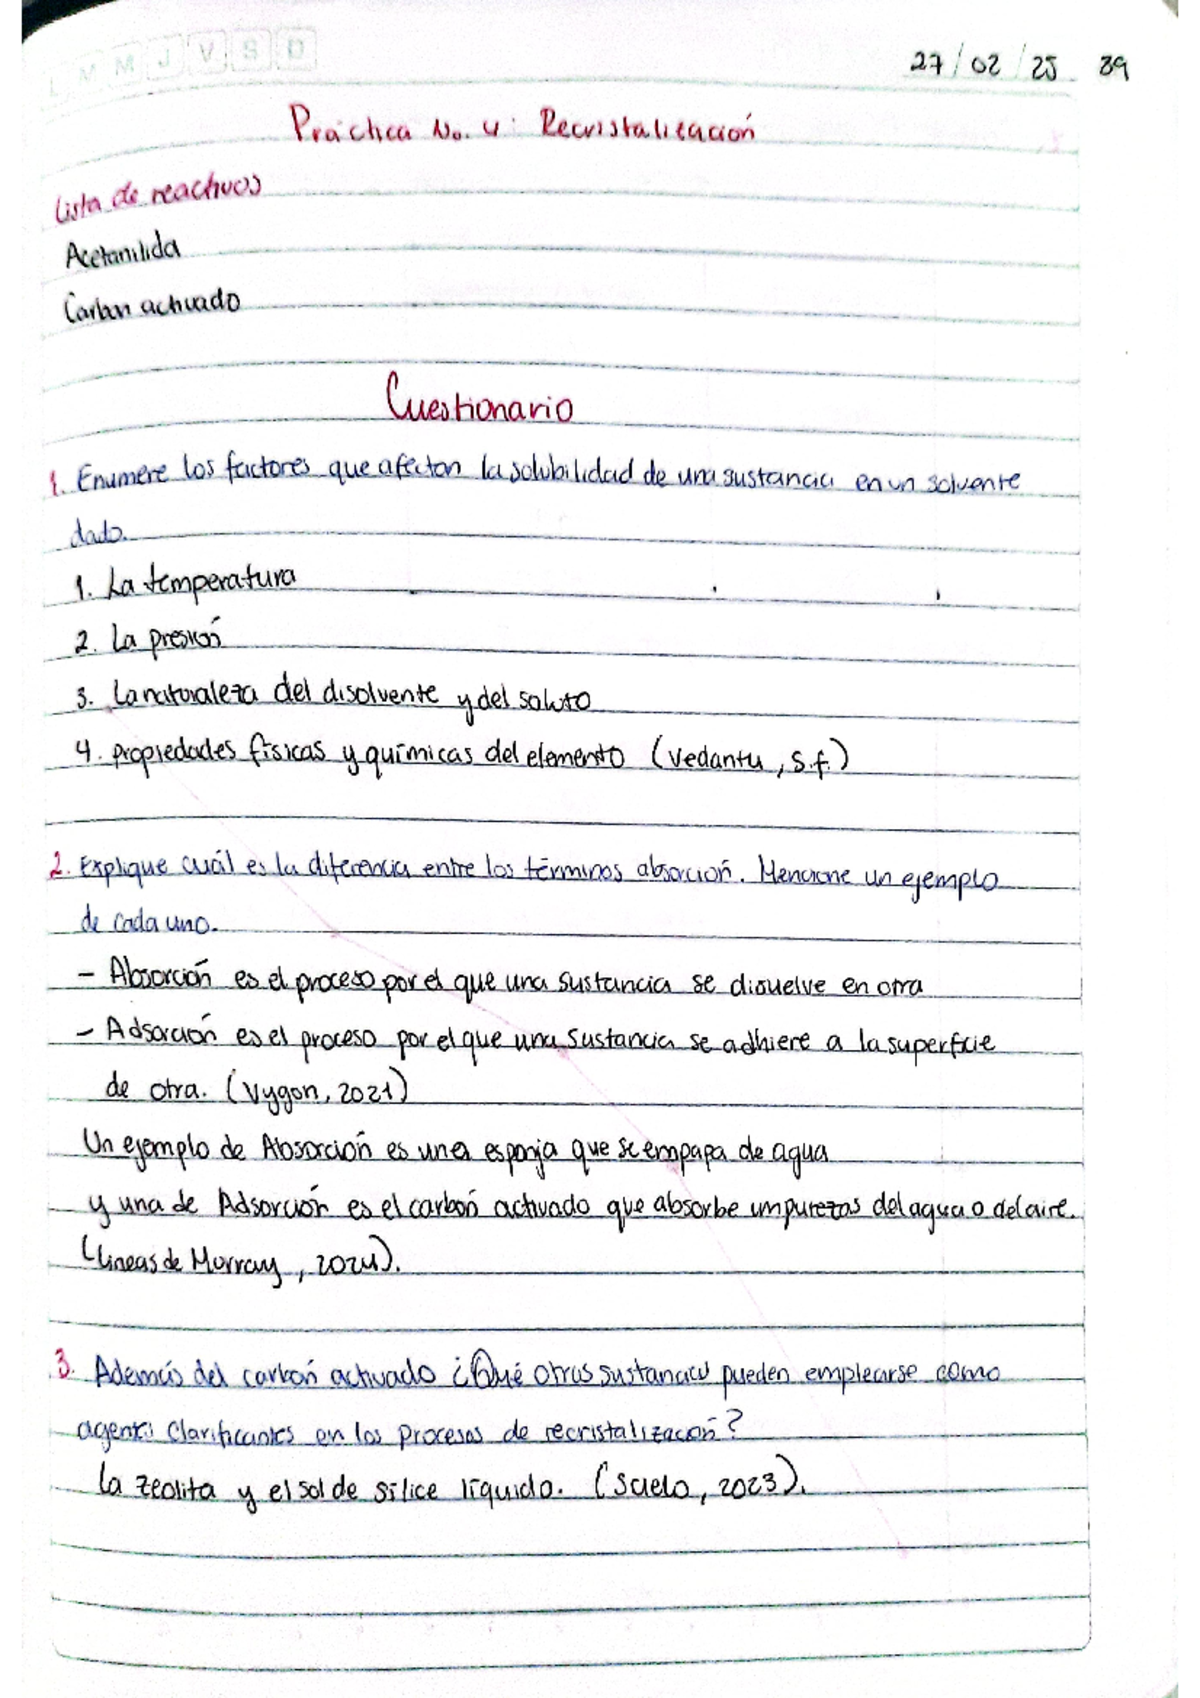 L M M J V S D
27/02/25 39
Práctica No. 4: Recristalización
Lista de reactivos
Acetanilida
Carbon activado
Cuestionario
1. Enumere los factores que afectan la solubilidad de una sustancia en un solvente
dado.
1. La temperatura
2. La presión
3. La naturaleza del disolvente y del soluto
4. propiedades físicas y químicas del elemento (Vedantu, s.f.)
2. Explique cuál es la diferencia entre los términos absorción. Mencione un ejemplo
de cada uno.
- Absorción es el proceso por el que una sustancia se disuelve en otra
- Adsorción es el proceso por el que una sustancia se adhiere a la superficie
de otra. (Vygon, 2021)
Un ejemplo de Absorción es una esponja que se empapa de agua
y una de Adsorción es el carbón activado que absorbe impurezas del agua o del aire.
(Lineas de Murray, 2024).
3. Además del carbón activado ¿Qué otras sustancias pueden emplearse como
agentes clarificantes en los procesos de recristalización?
La zeolita y el sol de sílice líquido. (Scielo, 2023).